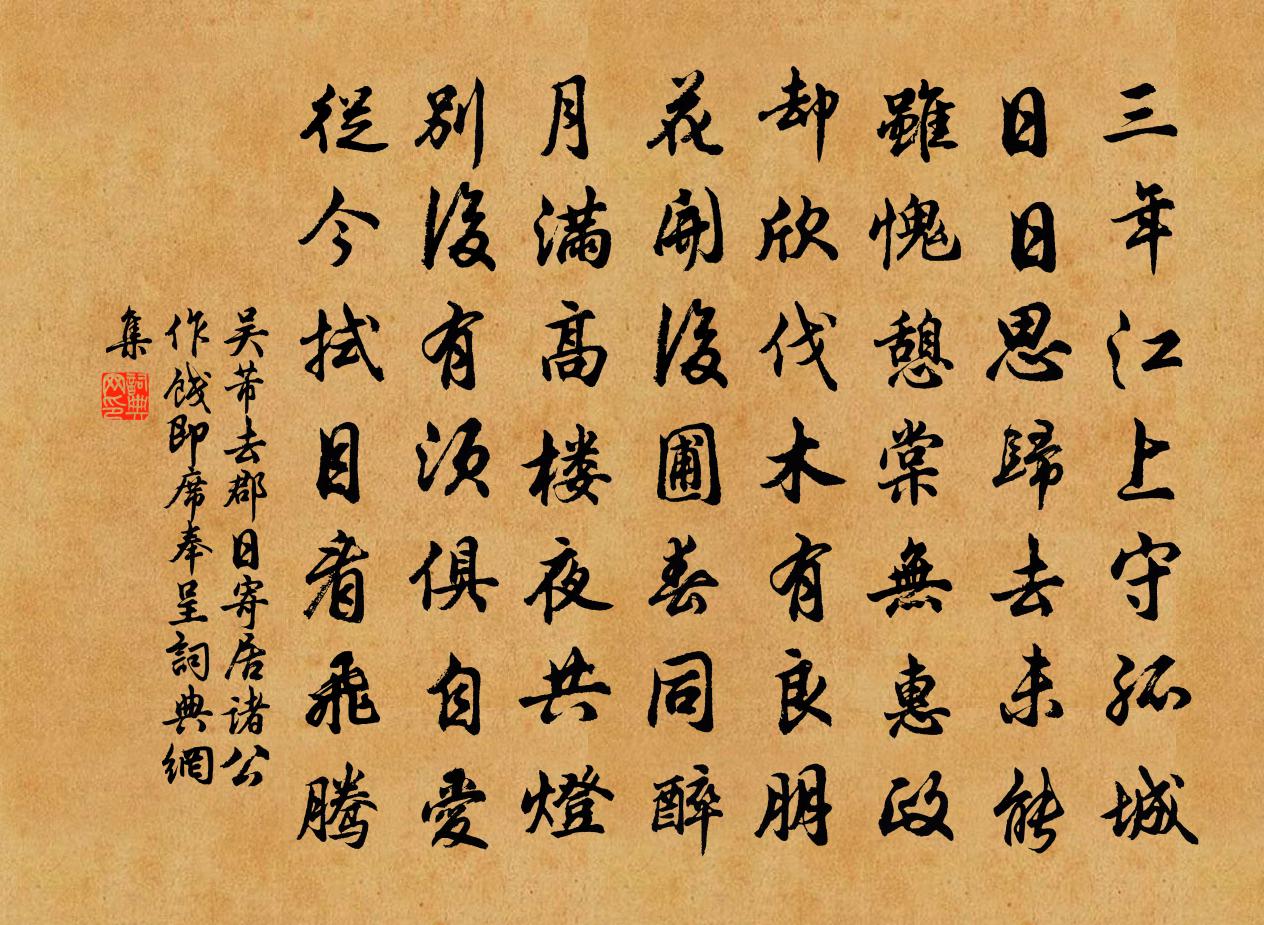 三年江上守孤城
日日思歸去未能
雖愧憩棠無惠政
却欣伐木有良朋
花開後圃春同醉
月滿高楼夜共燈
別後有須俱自愛
從今拭目看飛騰
吴芾去郡日寄居諸公
作餞即席奉呈詞典網
集
詞典
网印